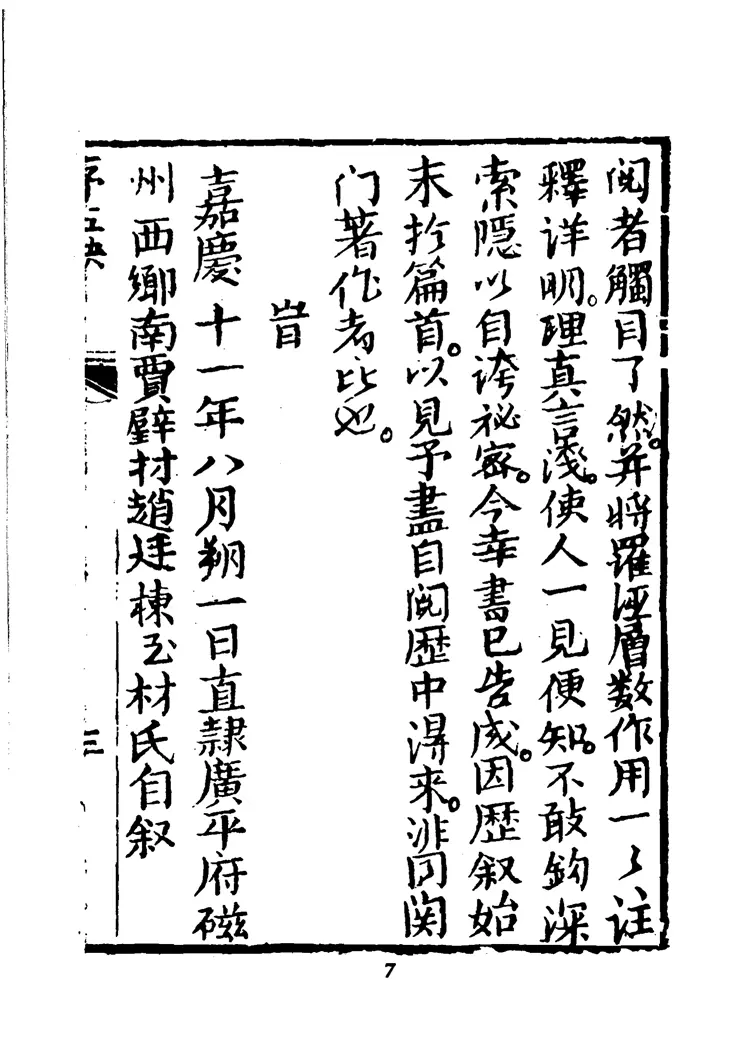 阅者觸目了然。并将羅経層数作用一々註
釋详明。理真言浅。使人一見便知。不敢鈎深
索隠以自誇祕密。今幸書已告成。因歴叙始
末扵篇首。以見予盡自阅歴中得来。非同関
门著作者比也。
旹
嘉慶十一年八月朔一日直隷廣平府磁
州西鄉南賈壁村趙廷棟玉材氏自叙
三
7